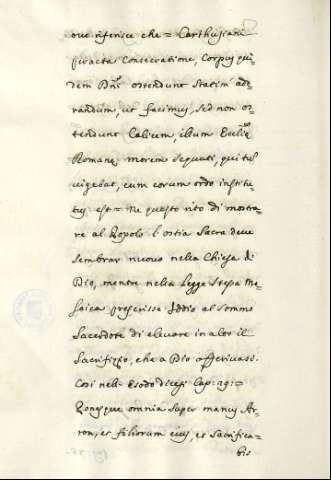 ove riferisce che = Carthusiani
peracta Consecratione, Corpus qui
dem Dñi ostendunt statim ado
randum, ut facimus, sed non os
tendunt Calicem, illum Eccliæ
Romanæ morem sequuti, qui tūc
vigebat, cum eorum ordo institu
tus est = Ne questo rito di mostra
re al Popolo l'ostia Sacra deve
sembrar nuovo nella Chiesa di
Dio, mentre nella Legge stessa Mo
saica prescrisse Iddio al sommo
Sacerdote di elevare in alto il
Sacrifizio, che a Dio offerivasi.
Così nell'Esodo dicesi Cap: 29:
Ponesque omnia super manus Aa
ron, et filiorum eius, et sacrifica-
bis